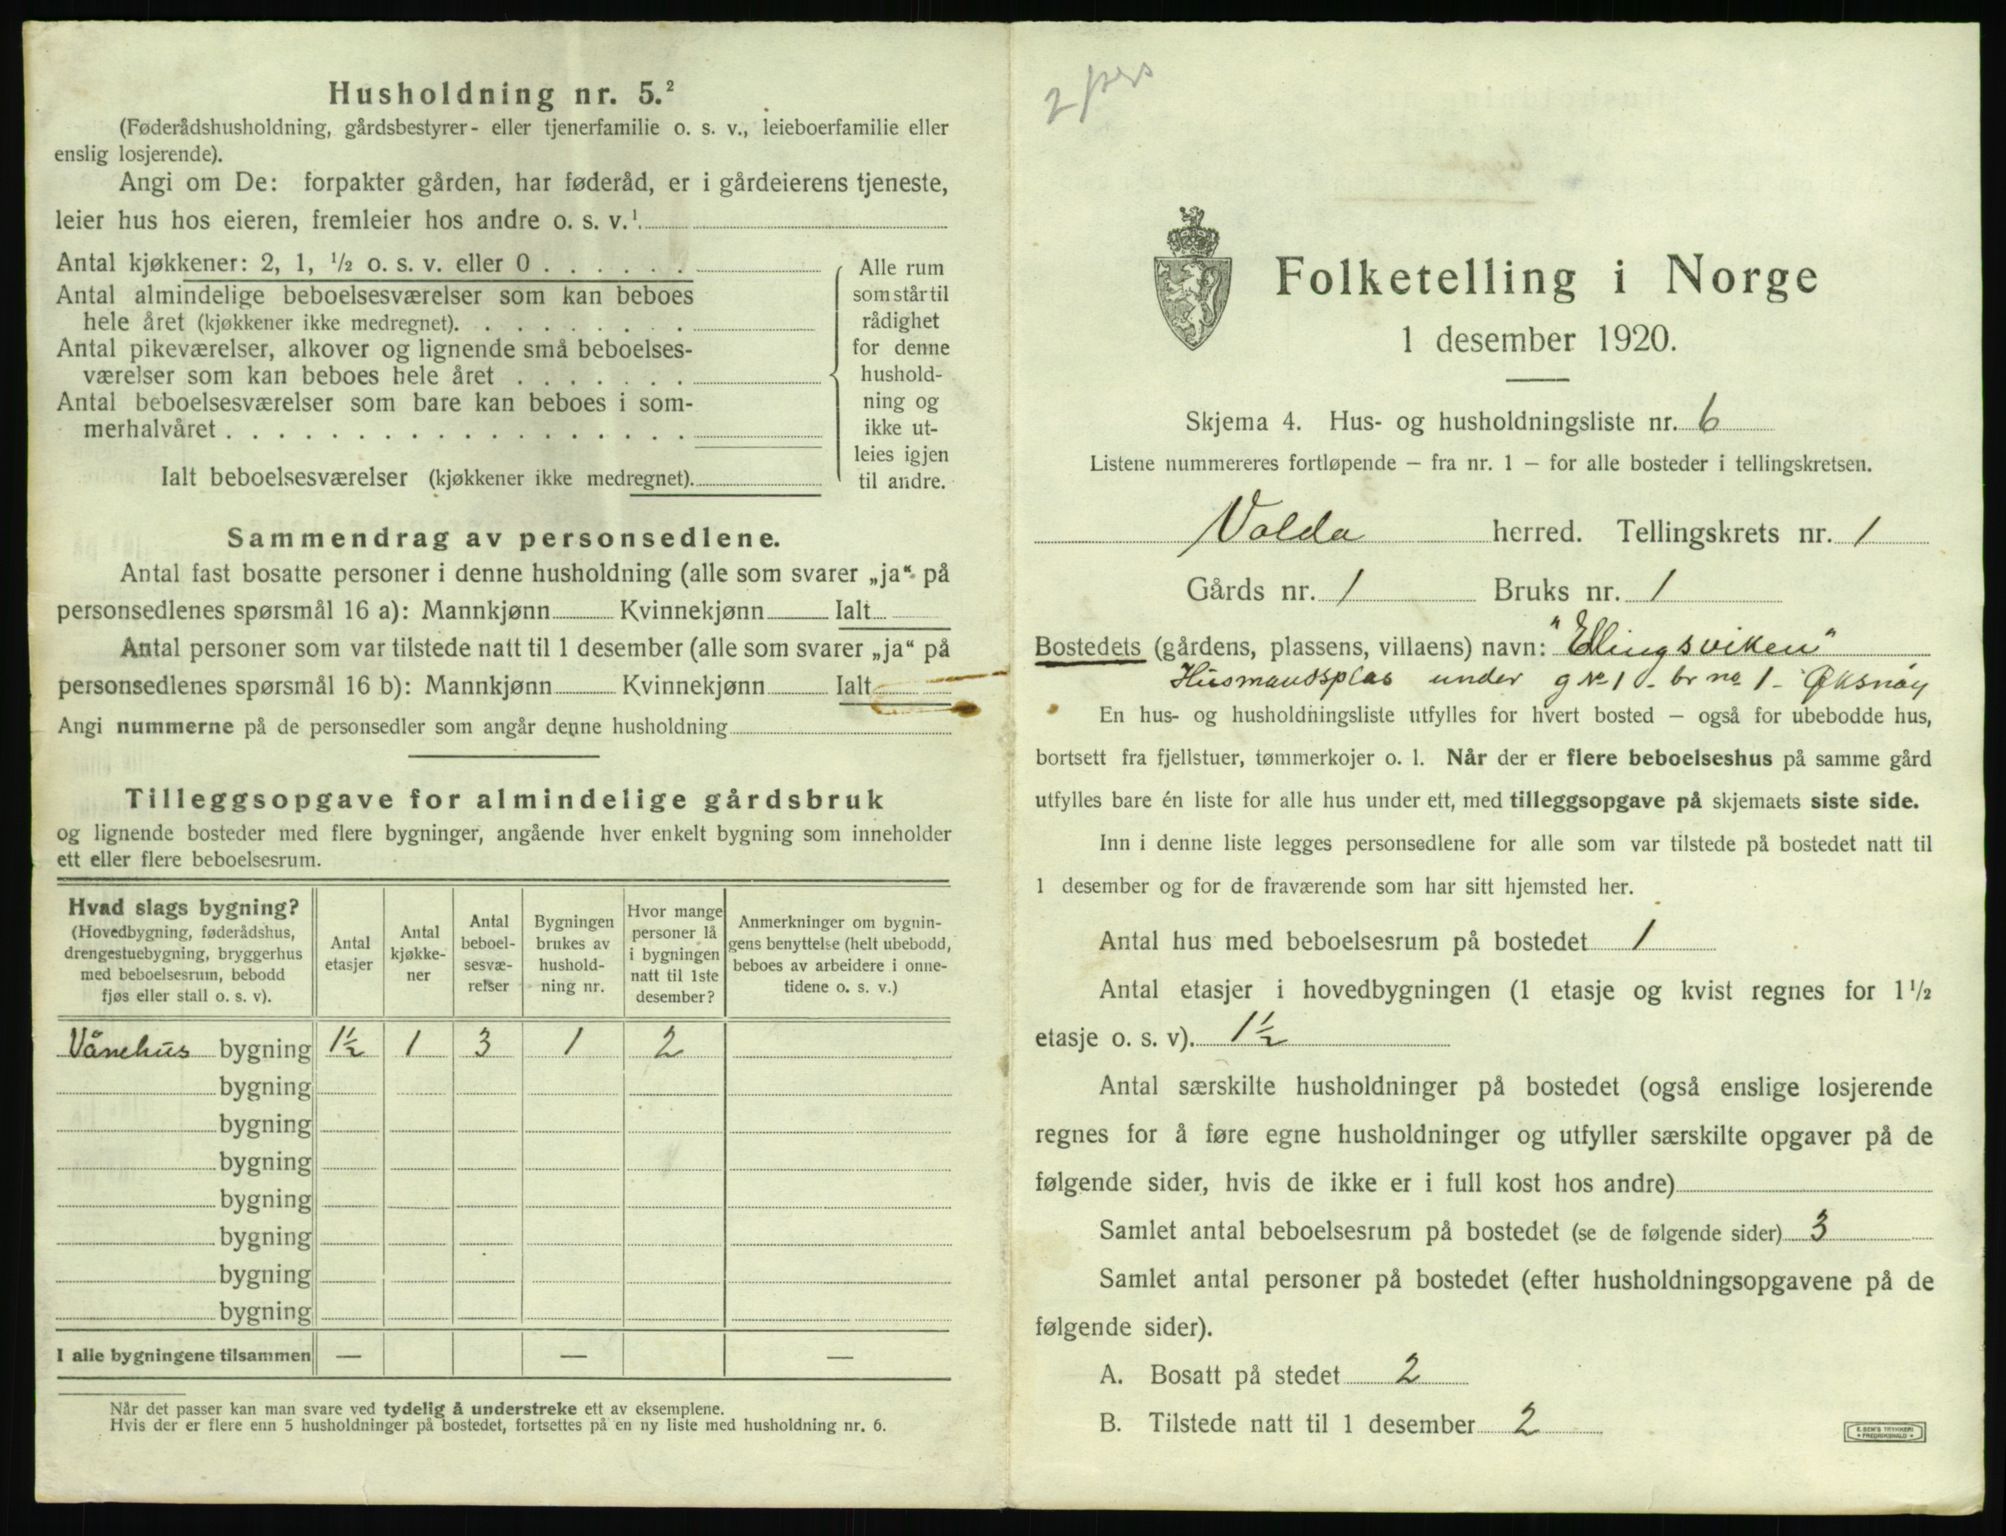 Husholdning nr. 5.²
(Føderådshusholdning, gårdsbestyrer- eller tjenerfamilie o. s. v., leieboerfamilie eller
enslig losjerende).
Angi om De: forpakter gården, har føderåd, er i gårdeierens tjeneste,
leier hus hos eieren, fremleier hos andre o. s. v.¹
Antal kjøkkener: 2, 1, ½ o. s. v. eller 0 . . . . . .
Antal almindelige beboelsesværelser som kan beboes
hele året (kjøkkener ikke medregnet). . . . . . . . .
Antal pikeværelser, alkover og lignende små beboelses-
værelser som kan beboes hele året . . . . . . .
Antal beboelsesværelser som bare kan beboes i som-
merhalvåret . . . . . . . . . . . . . . . . . .
Ialt beboelsesværelser (kjøkkener ikke medregnet).
Alle rum
som står til
rådighet
for denne
hushold-
ning og
ikke ut-
leies igjen
til andre.
Sammendrag av personsedlene.
Antal fast bosatte personer i denne husholdning (alle som svarer „ja“ på
personsedlenes spørsmål 16 a): Mannkjønn Kvinnekjønn Ialt
Antal personer som var tilstede natt til 1 desember (alle som svarer „ja“ på
personsedlenes spørsmål 16 b): Mannkjønn Kvinnekjønn Ialt
Angi nummerne på de personsedler som angår denne husholdning
Tilleggsopgave for almindelige gårdsbruk
og lignende bosteder med flere bygninger, angående hver enkelt bygning som inneholder
ett eller flere beboelsesrum.
Hvad slags bygning?
(Hovedbygning, føderådshus,
drengestuebygning, bryggerhus
med beboelsesrum, bebodd
fjøs eller stall o. s. v).
Antal
etasjer
Antal
kjøkke-
ner
Antal
beboel-
sesvæ-
relser
Bygningen
brukes av
hushold-
ning nr.
Hvor mange
personer lå
i bygningen
natt til 1ste
desember?
Anmerkninger om bygnin-
gens benyttelse (helt ubebodd,
beboes av arbeidere i onne-
tidene o. s. v.)
Vånehus bygning 1½ 1 3 1 2
bygning
bygning
bygning
bygning
bygning
bygning
bygning
I alle bygningene tilsammen — — —
Når det passer kan man svare ved tydelig å understreke ett av eksemplene.
Hvis der er flere enn 5 husholdninger på bostedet, fortsettes på en ny liste med husholdning nr. 6.
2 pers
Folketelling i Norge
1 desember 1920.
Skjema 4. Hus- og husholdningsliste nr. 6
Listene nummereres fortløpende – fra nr. 1 – for alle bosteder i tellingskretsen.
Volda herred. Tellingskrets nr. 1
Gårds nr. 1 Bruks nr. 1
Bostedets (gårdens, plassens, villaens) navn: "Ellingsviken"
Husmandsplas under g No 1 - br no 1 - Øksnøy
En hus- og husholdningsliste utfylles for hvert bosted – også for ubebodde hus,
bortsett fra fjellstuer, tømmerkojer o. l. Når der er flere beboelseshus på samme gård
utfylles bare én liste for alle hus under ett, med tilleggsopgave på skjemaets siste side.
Inn i denne liste legges personsedlene for alle som var tilstede på bostedet natt til
1 desember og for de fraværende som har sitt hjemsted her.
Antal hus med beboelsesrum på bostedet 1
Antal etasjer i hovedbygningen (1 etasje og kvist regnes for 1½
etasje o. s. v). 1½
Antal særskilte husholdninger på bostedet (også enslige losjerende
regnes for å føre egne husholdninger og utfyller særskilte opgaver på de
følgende sider, hvis de ikke er i full kost hos andre)
Samlet antal beboelsesrum på bostedet (se de følgende sider) 3
Samlet antal personer på bostedet (efter husholdningsopgavene på de
følgende sider).
A. Bosatt på stedet 2
B. Tilstede natt til 1 desember 2
E. SEM'S TRYKKERI
FREDRIKSHALD